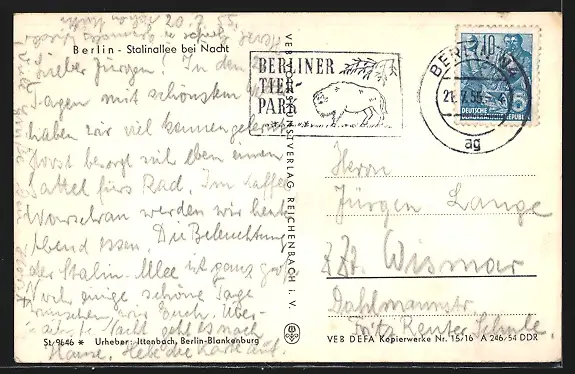 20.7.55.
Berlin - Stalinallee bei Nacht
Lieber Jürgen! In den
Tagen mit schönstem
haben wir viel kennengelernt
Horst besorgt sich eben einen
Sattel fürs Rad. Im Kaffee
Warschau werden wir heute
Abend essen. Die Beleuchtung
der Stalin-Allee ist ganz groß
Noch einige schöne Tage
wünschen wir Euch. Über-
Nacht geht es nach
Hause. Hebe die Karte auf.
St. 9646 * Urheber: Ittenbach, Berlin-Blankenburg
VEB VOLKSKUNSTVERLAG REICHENBACH I. V.
BERLINER
TIER-
PARK
BERLIN
ag
10
5
DEUTSCHE
DEMOKRATISCHE REPUBLIK
Herrn
Jürgen Lange
Wismar
Dahlmannstr.
Fritz Reuter Schule.
VEB DEFA Kopierwerke Nr. 15/16 A 246/54 DDR